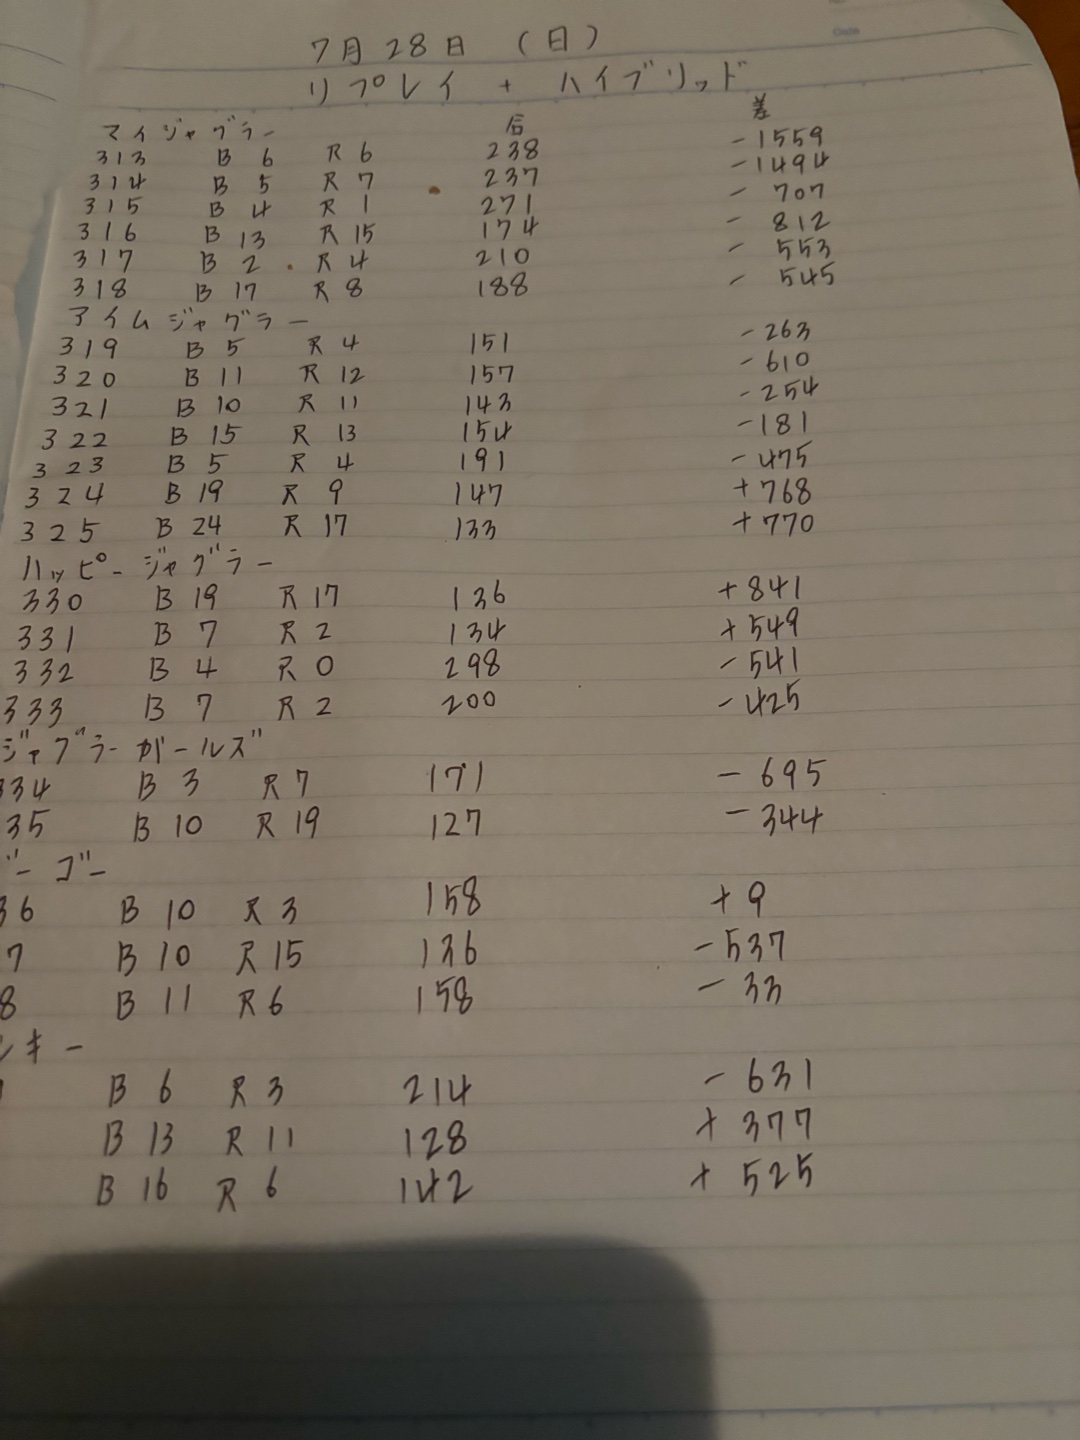 7月28日 (日)
リプレイ + ハイブリッド
マイジャグラー 后 差
313 B 6 R 6 238 -1559
314 B 5 R 7 237 -1494
315 B 4 R 1 271 -707
316 B 13 R 15 174 -812
317 B 2 R 4 210 -553
318 B 17 R 8 188 -545
アイムジャグラー
319 B 5 R 4 151 -263
320 B 11 R 12 157 -610
321 B 10 R 11 143 -254
322 B 15 R 13 154 -181
323 B 5 R 4 191 -475
324 B 19 R 9 147 +768
325 B 24 R 17 133 +770
ハッピージャグラー
330 B 19 R 17 136 +841
331 B 7 R 2 134 +549
332 B 4 R 0 298 -541
333 B 7 R 2 200 -425
ジャグラーガールズ
334 B 3 R 7 171 -695
35 B 10 R 19 127 -344
ーゴー
36 B 10 R 3 158 +9
7 B 10 R 15 136 -537
8 B 11 R 6 158 -33
ンキー
B 6 R 3 214 -631
B 13 R 11 128 +377
B 16 R 6 142 +525